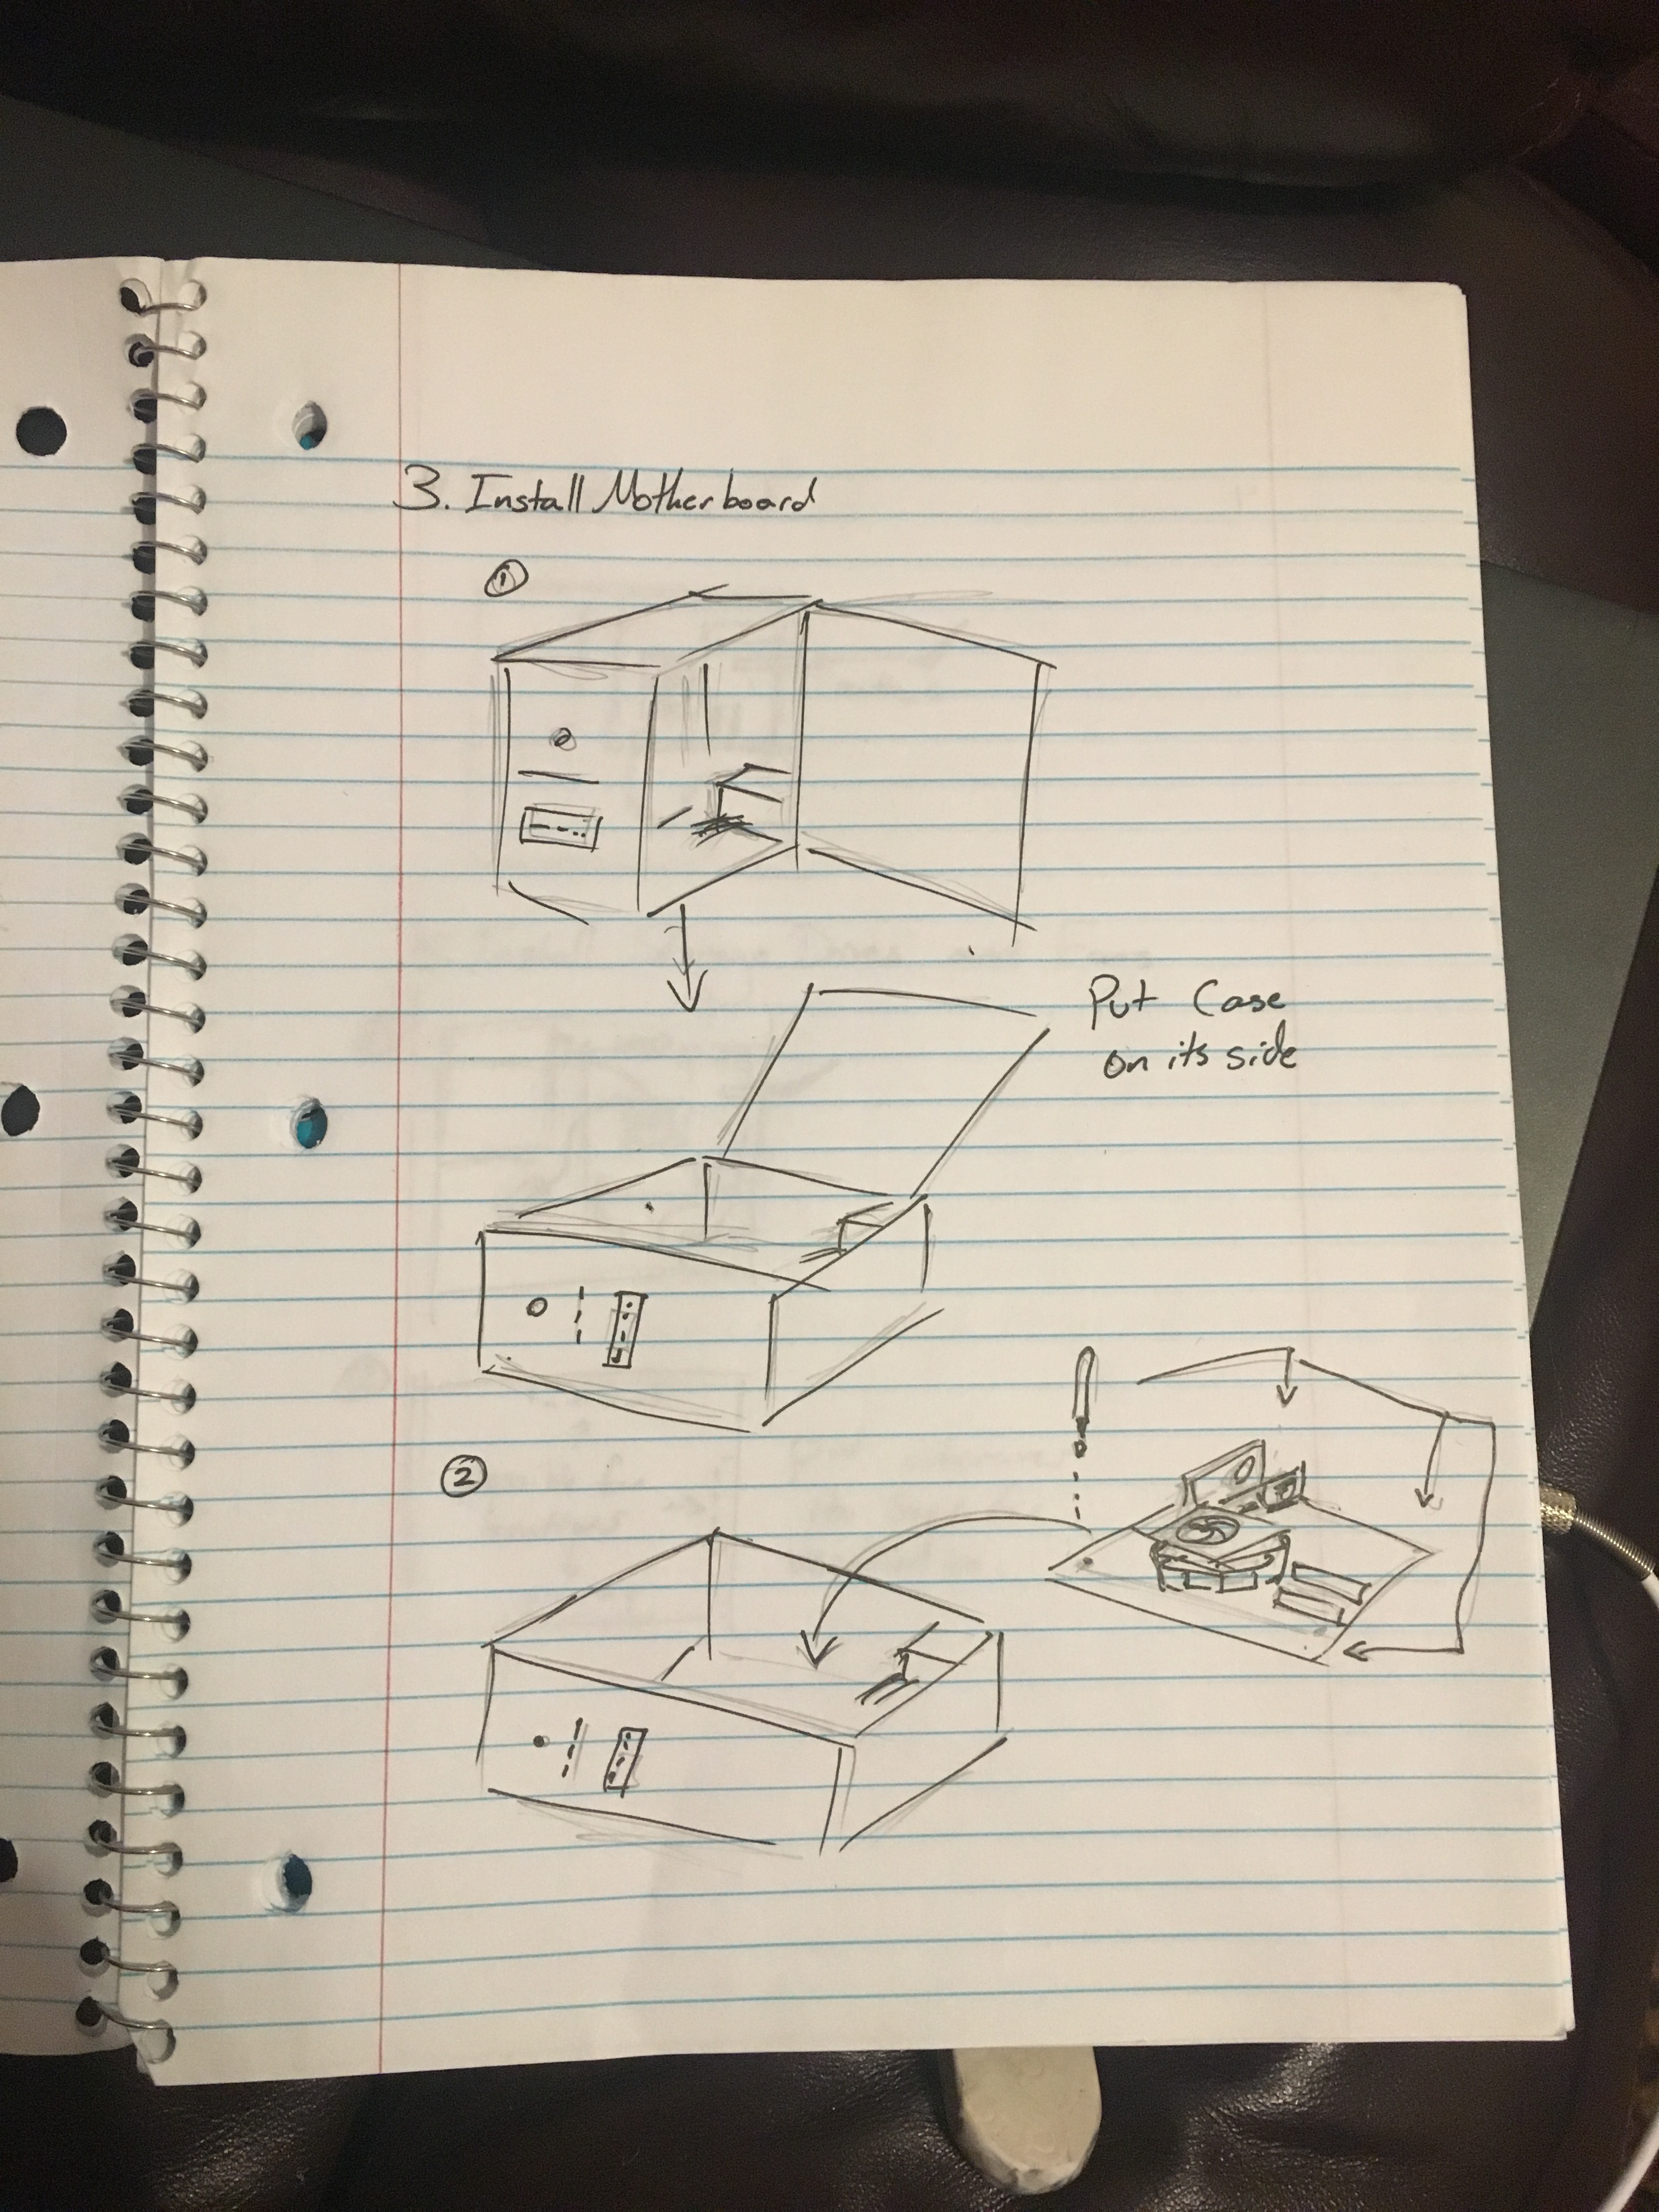 3. Install Motherboard
①
Put Case
on its side
②